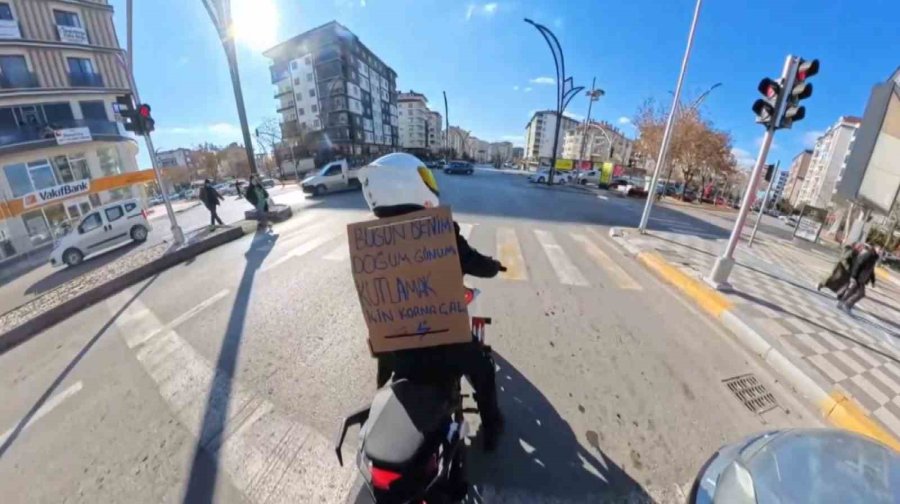 BUGÜN BENİM
DOĞUM GÜNÜM
KUTLAMAK
İÇİN KORNA ÇAL
VakıfBank